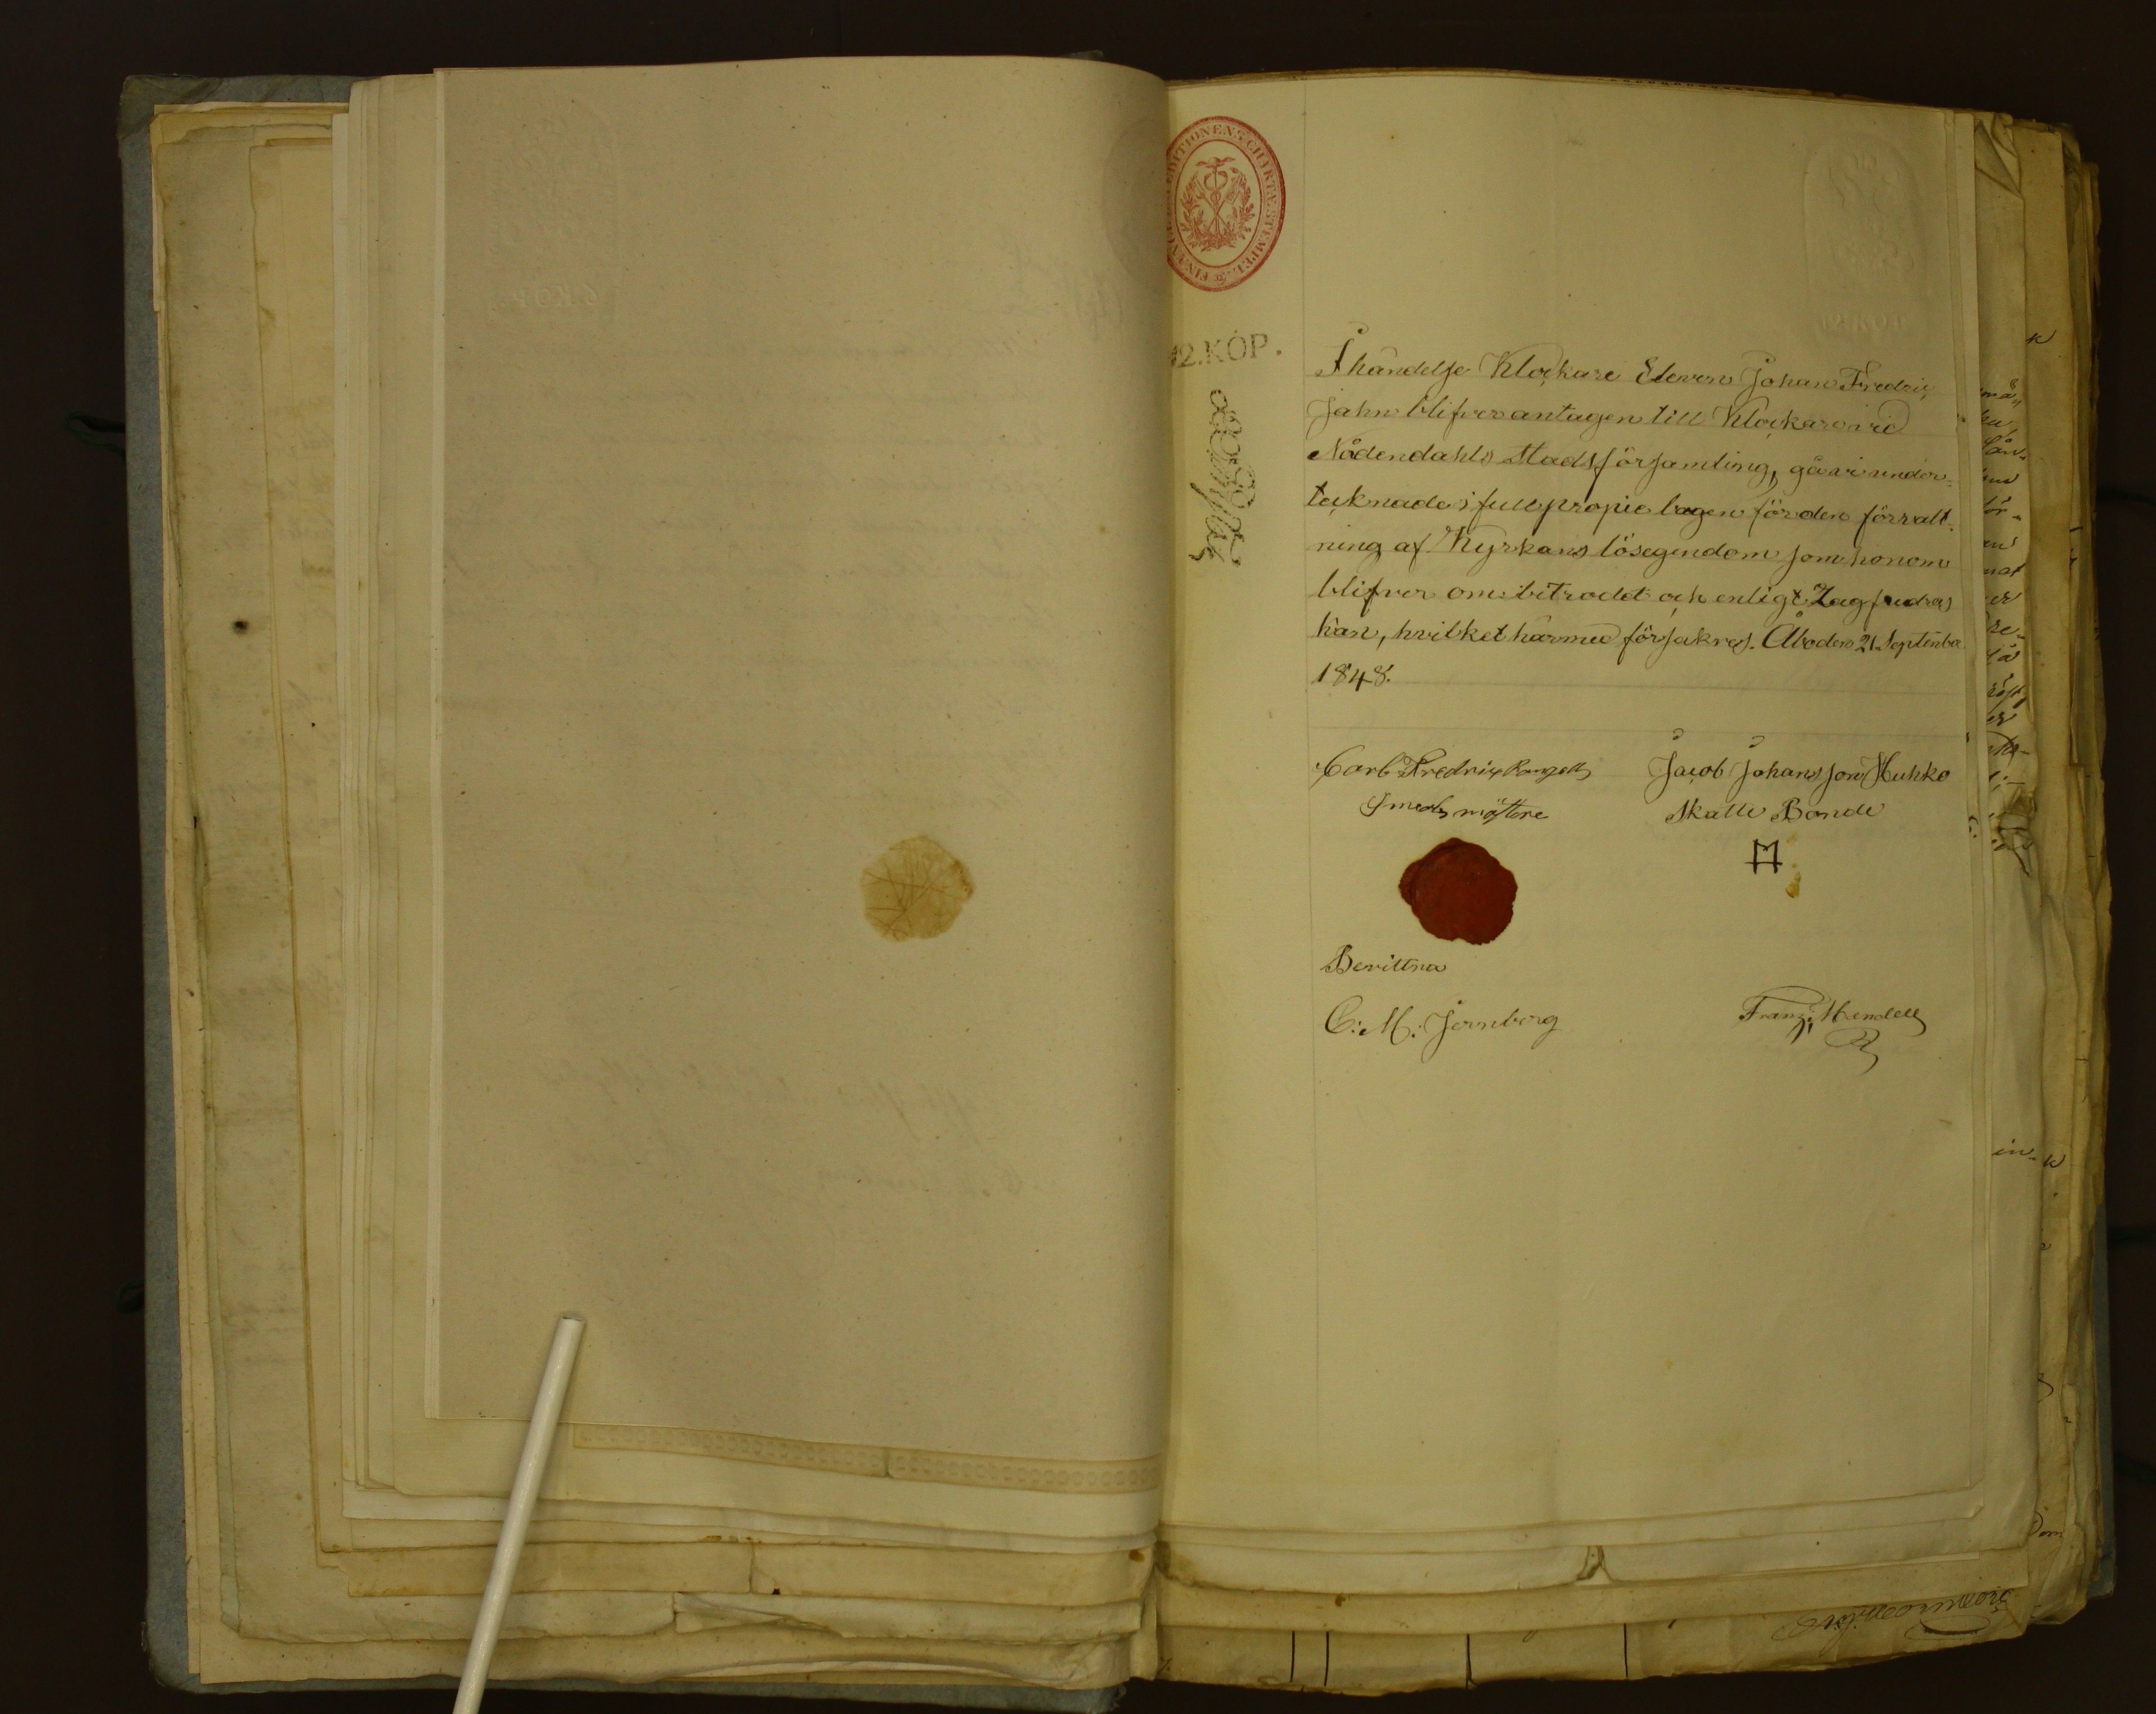 FINANCE EXPEDITIONENS CHARTÆ STEMPEL
12.KOP.
I händelse Klockare Eleven Johan Fredric
Jahn blifver antagen till Klockare vid
Nådendahls Stadsförsamling, gå vi under-
tecknade i full proprie borgen för den förvalt-
ning af Kyrkans lösegendom som honom
blifver ombetrodd och enligt Lag fredras
kan, hvilket härmed försäkras. Åbo den 21 Septemba
1848.
Carl Fredric
Jacob Johansson Huhko
Smeds mästare
Skatte Bonde
Bevittna
C: M: Jernberg
Franz Mendell